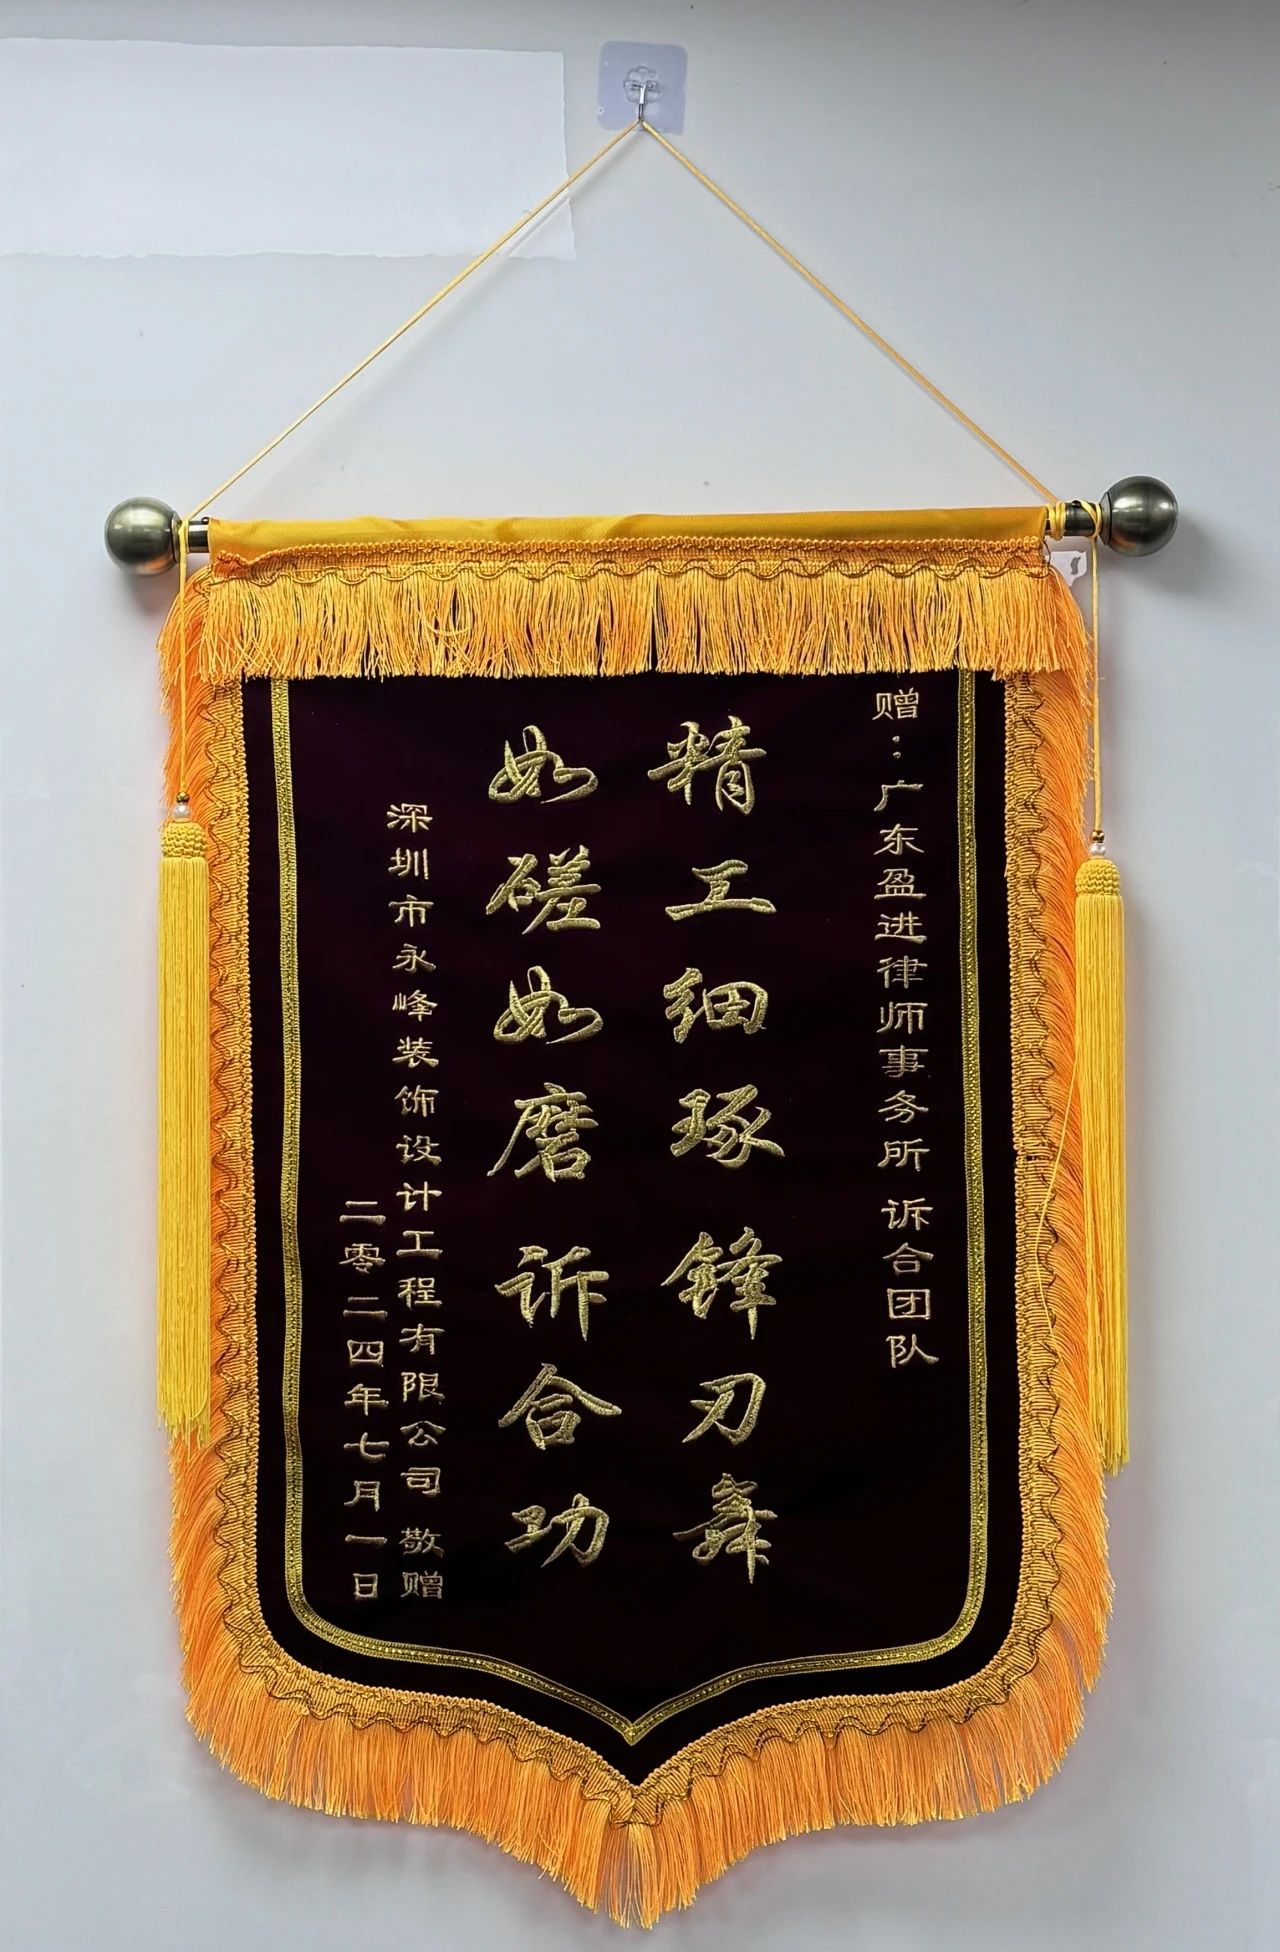 赠：广东盈进律师事务所 诉合团队
精工细琢 锋刃舞
如磋如磨 诉合功
深圳市永峰装饰设计工程有限公司 敬赠
二零二四年七月一日